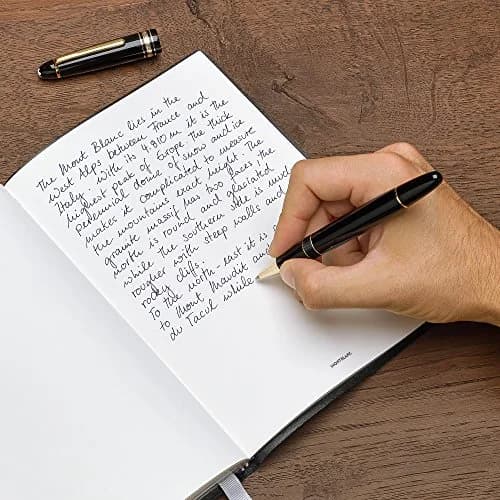 The Mont Blanc lies in the
West Alps between France and
Italy. With its 4,810 m it is the
highest peak of Europe. The thick
perennial dome of snow and ice
makes it complicated to measure
the mountains exact height. The
granite massif has two faces: the
north is round and glaciated
while the southern side is much
rougher with steep walls and
rocky cliffs.
To the north-east it is
to Mont Maudit and
du Tacul while
MONTBLANC